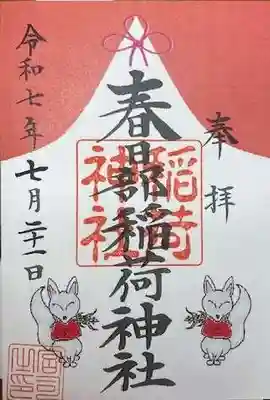 奉拝
春日部稲荷神社
稲荷
神社
令和七年
七月二十一日
宮司
之印